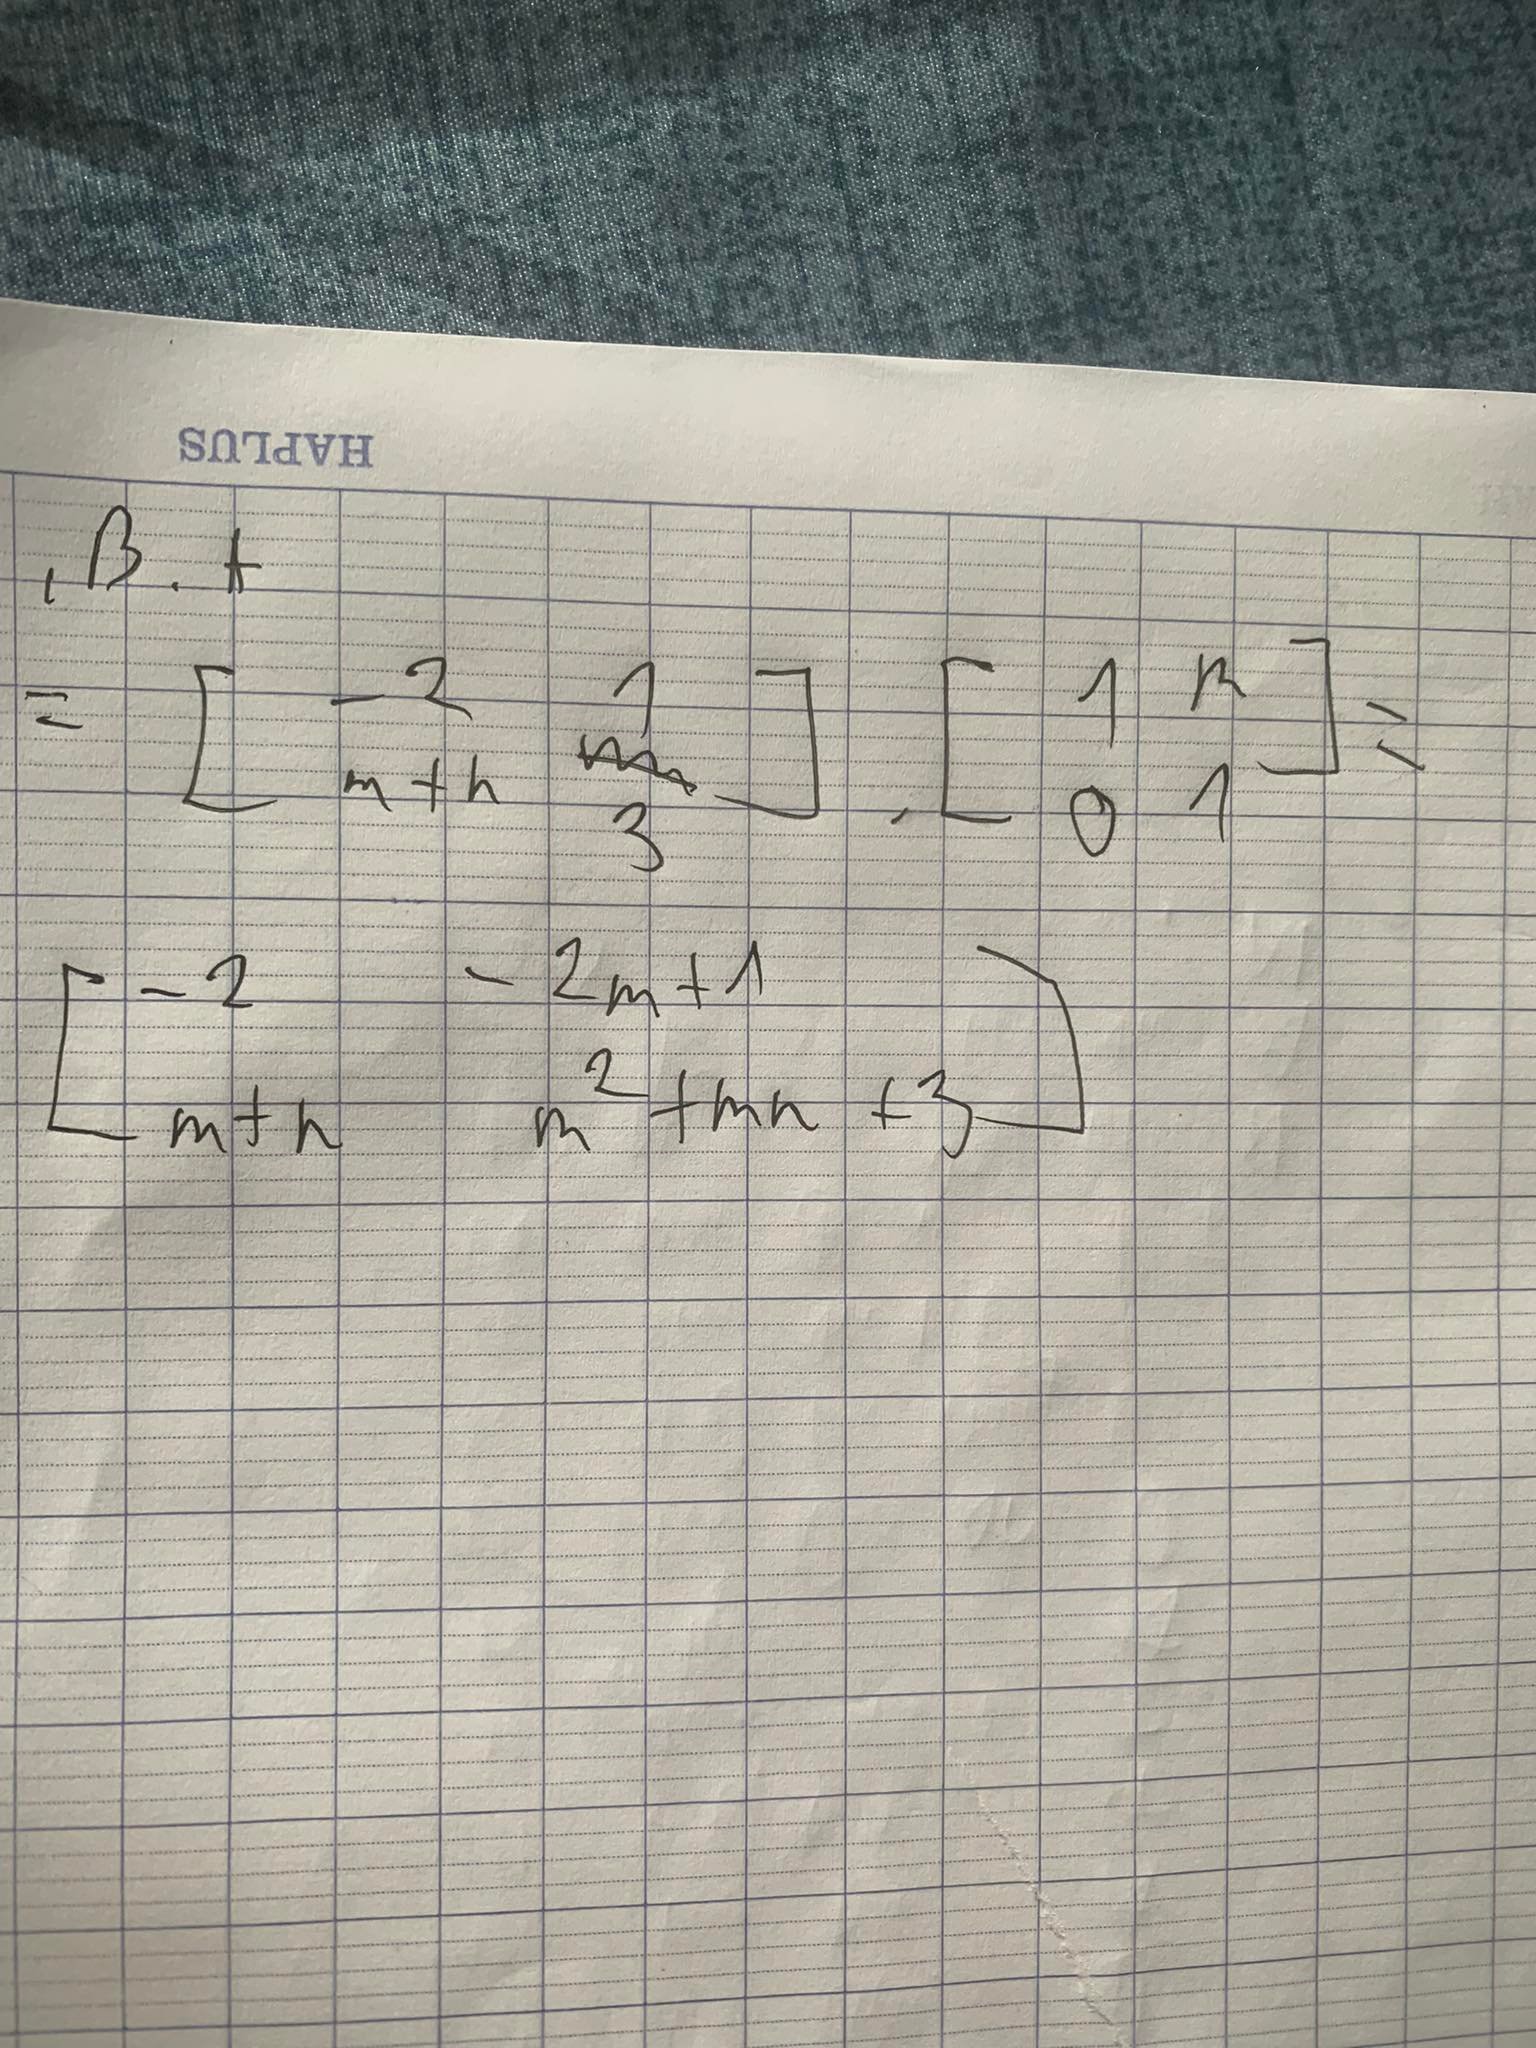 HAPLUS
, B . A
= [ -2 1 ] . [ 1 m ] =
m+n 3 0 1
[ -2 -2m+1 ]
m+n m² +mn +3